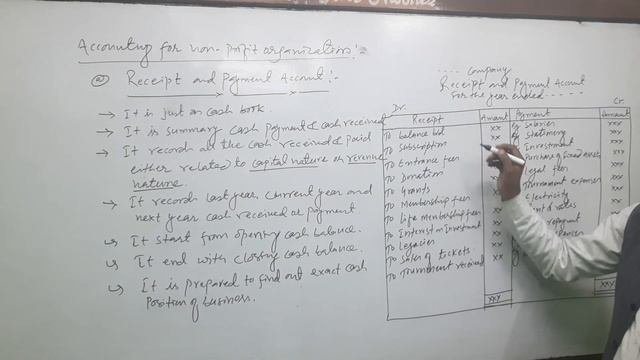 Accounting for non-profit organization:-
(a) Receipt and Payment Account:-
→ It is just as cash book.
→ It is summary cash payment & cash received
→ It record all the cash received & paid
either related to capital nature or revenue
nature.
→ It records last year, current year and
next year cash received or payment
→ It start from opening cash balance.
→ It end with closing cash balance.
→ It is prepared to find out exact cash
position of business.
.... Company
Receipt and Payment Account
For the year ended.....
Dr. Cr.
Receipt Amount Payment Amount
To balance b/d xx By Salaries xxx
To Subscription xx Stationery xxx
To Entrance fees Investment xxx
To Donation Purchase of fixed assets
To Grants Legal fees
To Membership fees xx Tournament expenses
To Life Membership fees xx Electricity
To Interest on Investment xx rates
To Legacies xx repayment
To Sales of tickets xx
To Tournament received xx
xxx xxx